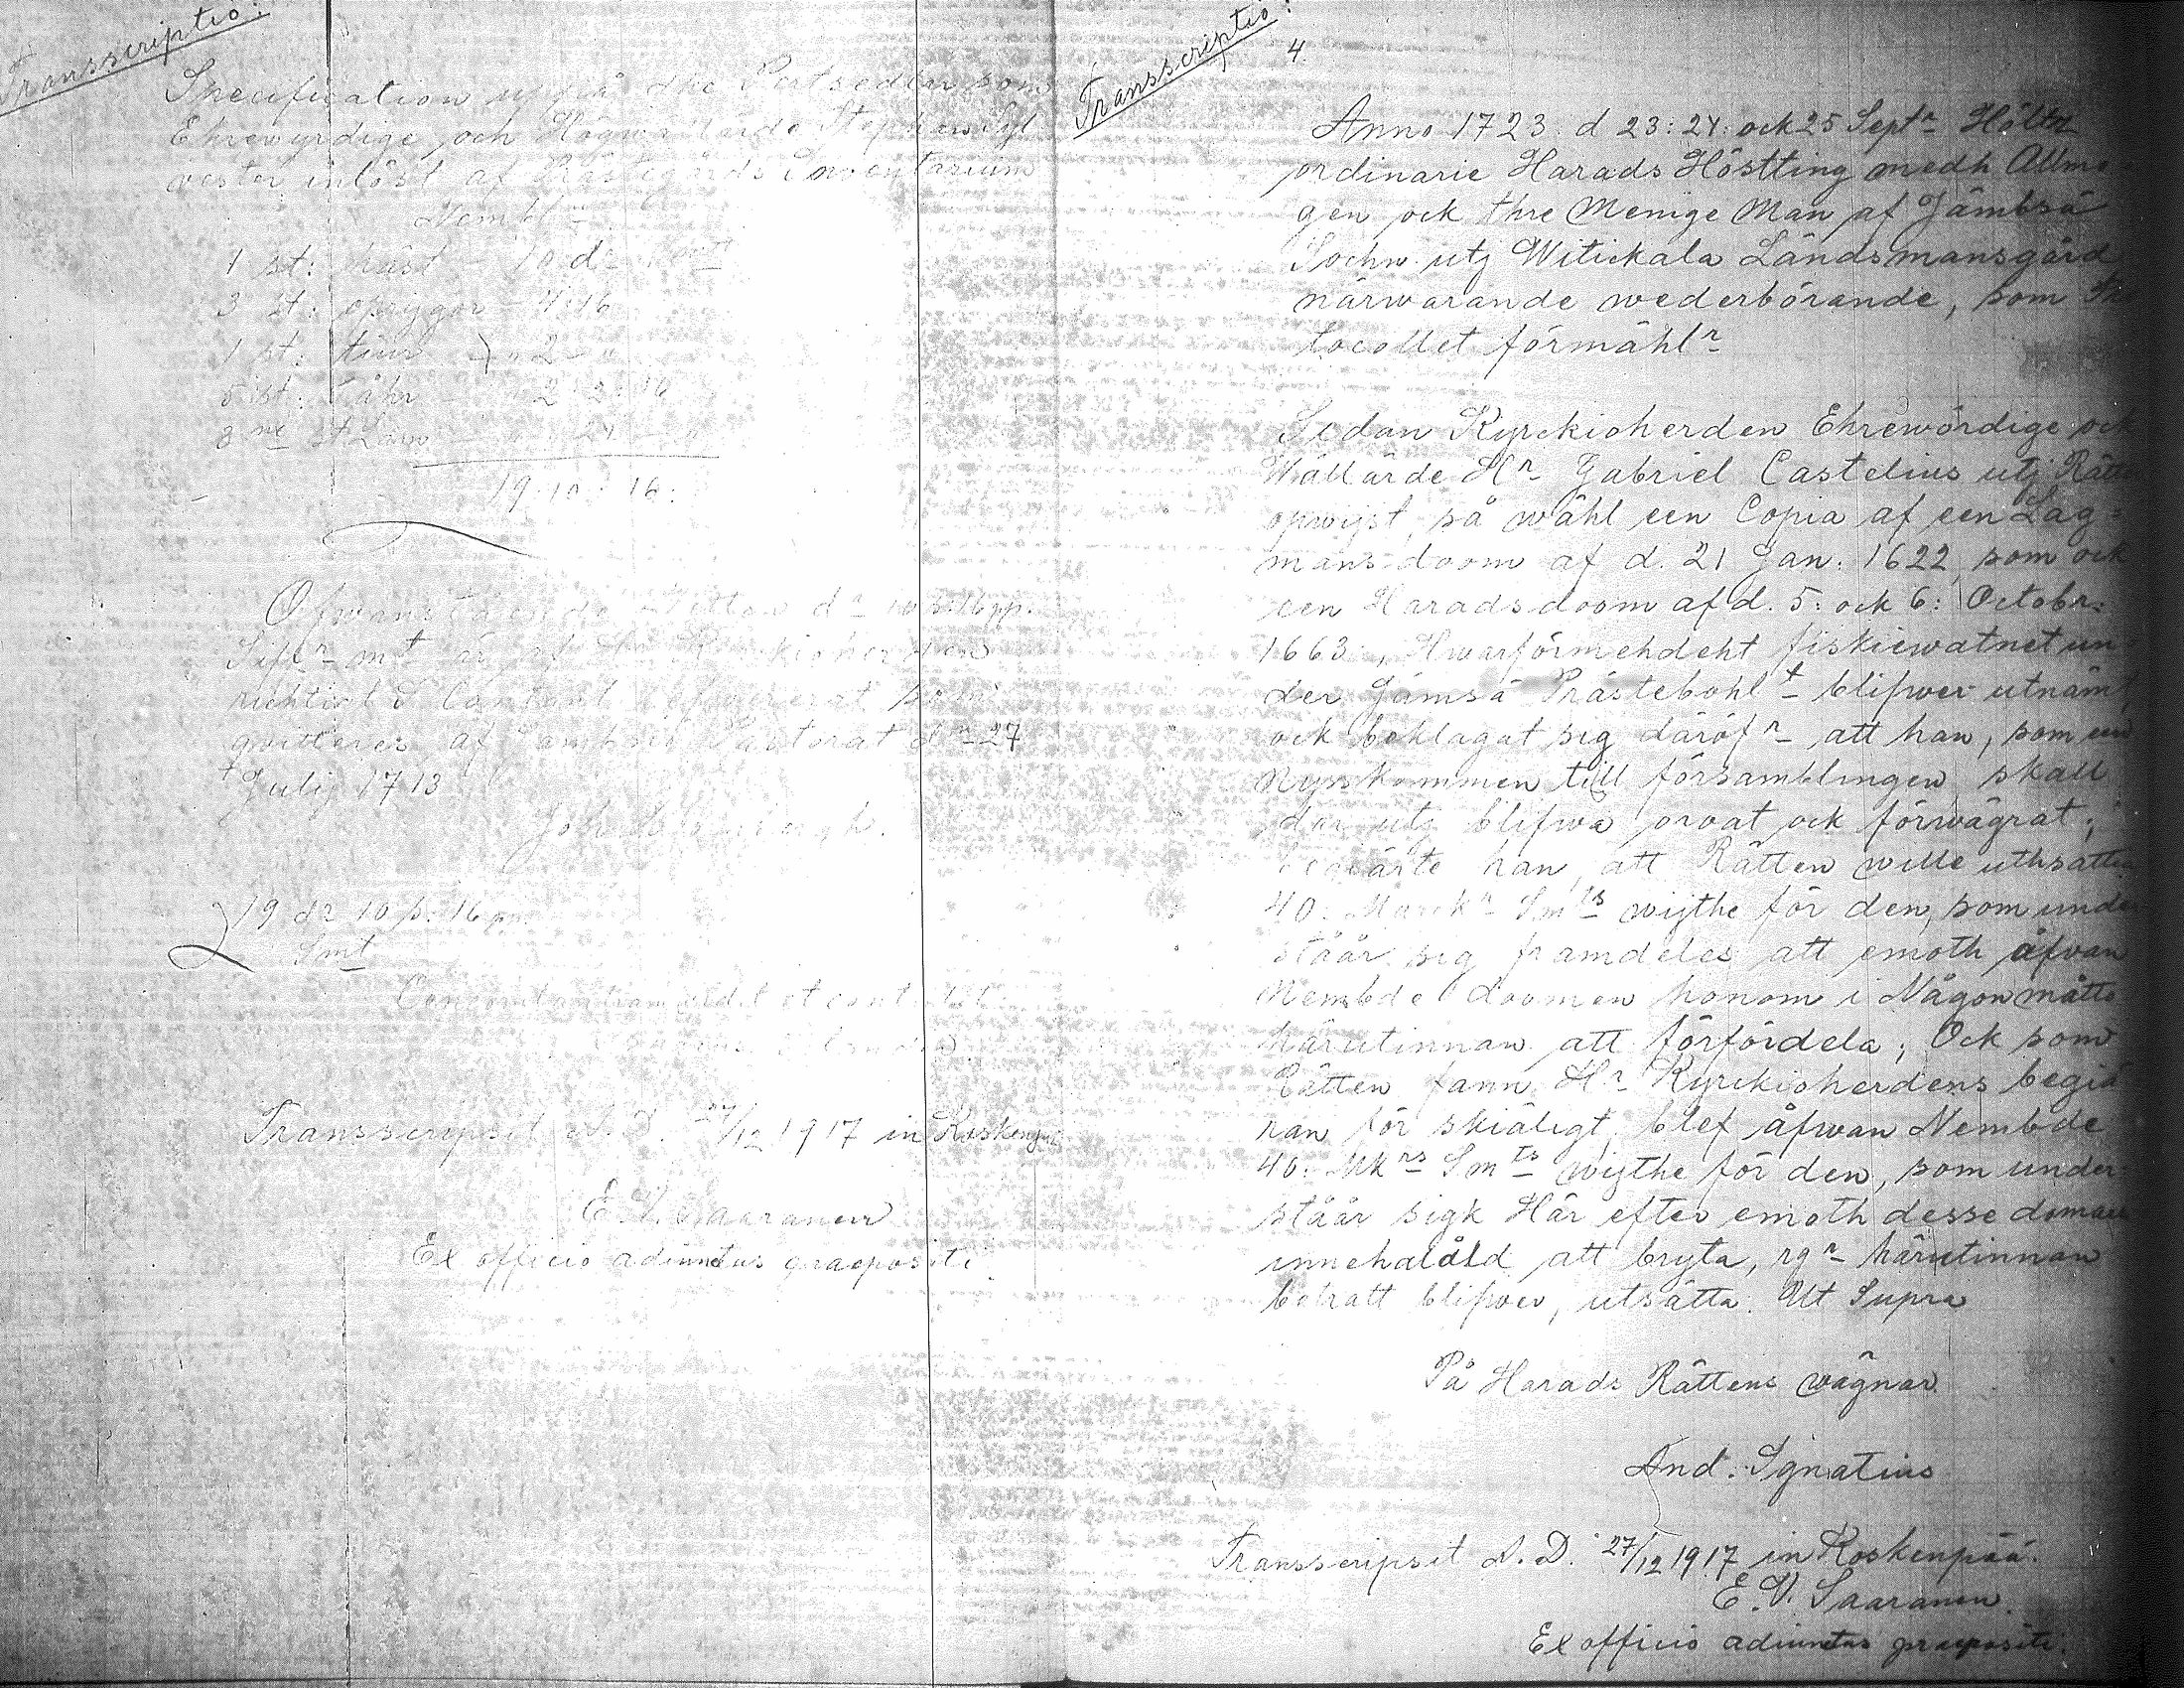 Transscriptio:
Specification uppå the Pertsedlar som
Ehrewyrdige och Högwällärde Stephan Syl
vester inlöst af Prästegårds Inventarium
Nembl.n
1 st: häst - 10 dr
3 st: 4:16
1 st: tiur - " 2 - "
5 st: fåhr - " 2: 2: 16
3 ne st
19: 10: 16:
Ofwanstående Nitton dr 10 s: 16 pp.
Silfr mt är af Kyrkioherden
richtigt
qvitteres af Pastorat dn 27
Julij 1713
Joh.
19 dr 10 s: 16 pp.
Smt
Transscripsit A. D. 27/12 1917 in Koskenpää
E. V. Saaranen
Ex officio adiunctus praepositi.
Transscriptio:
4.
Anno 1723. d 23: 24: ock 25 Septr Höltz
ordinarie Harads Höstting medh Allmo
gen ock thre Menige Man af Jämbsä
Sochn utj Witickala Ländsmansgård
närwarande wederbörande, som Pro
tocollet förmähln
Sedan Kyrckioherden Ehrewördige ock
Wällärde Hr Gabriel Castelius utj Rätten
opwijst, så wähl een Copia af een Lag=
mans doom af d. 21 Jan: 1622, som ock
een Harads doom af d. 5: ock 6: Octobr:
1663:, Hwarförmehdeht fiskiewatnet un
der Jämsä Prästebohlt blifwer utnämt,
ock beklagat sig däröfr att han, som een
Nysskommen till församblingen skall
dar utj blifwa oroat ock förwägrat;
begiärte han, att Rätten wille uthsätta
40: Marckr Smts wijthe för den, som under
ståår sig framdeles att emoth åfvan
Nembde doomen honom i Någon måtto
härutinnan att förfördela; Ock som
Rätten fann Hr Kyrckioherdens begiä
ran för skiäligt, blef åfwan Nembde
40: Mkrs Smts wijthe för den, som under=
ståår sigk Här efter emoth desse domars
innehalåld att bryta, rgr härutinnan
beträtt blifwer, utsätta. Ut Supra
På Harads Rättens wägnar.
And. Ignatius
Transscripsit A. D. 27/12 1917 in Koskenpää.
E. V. Saaranen.
Ex officio adiunctus praepositi.